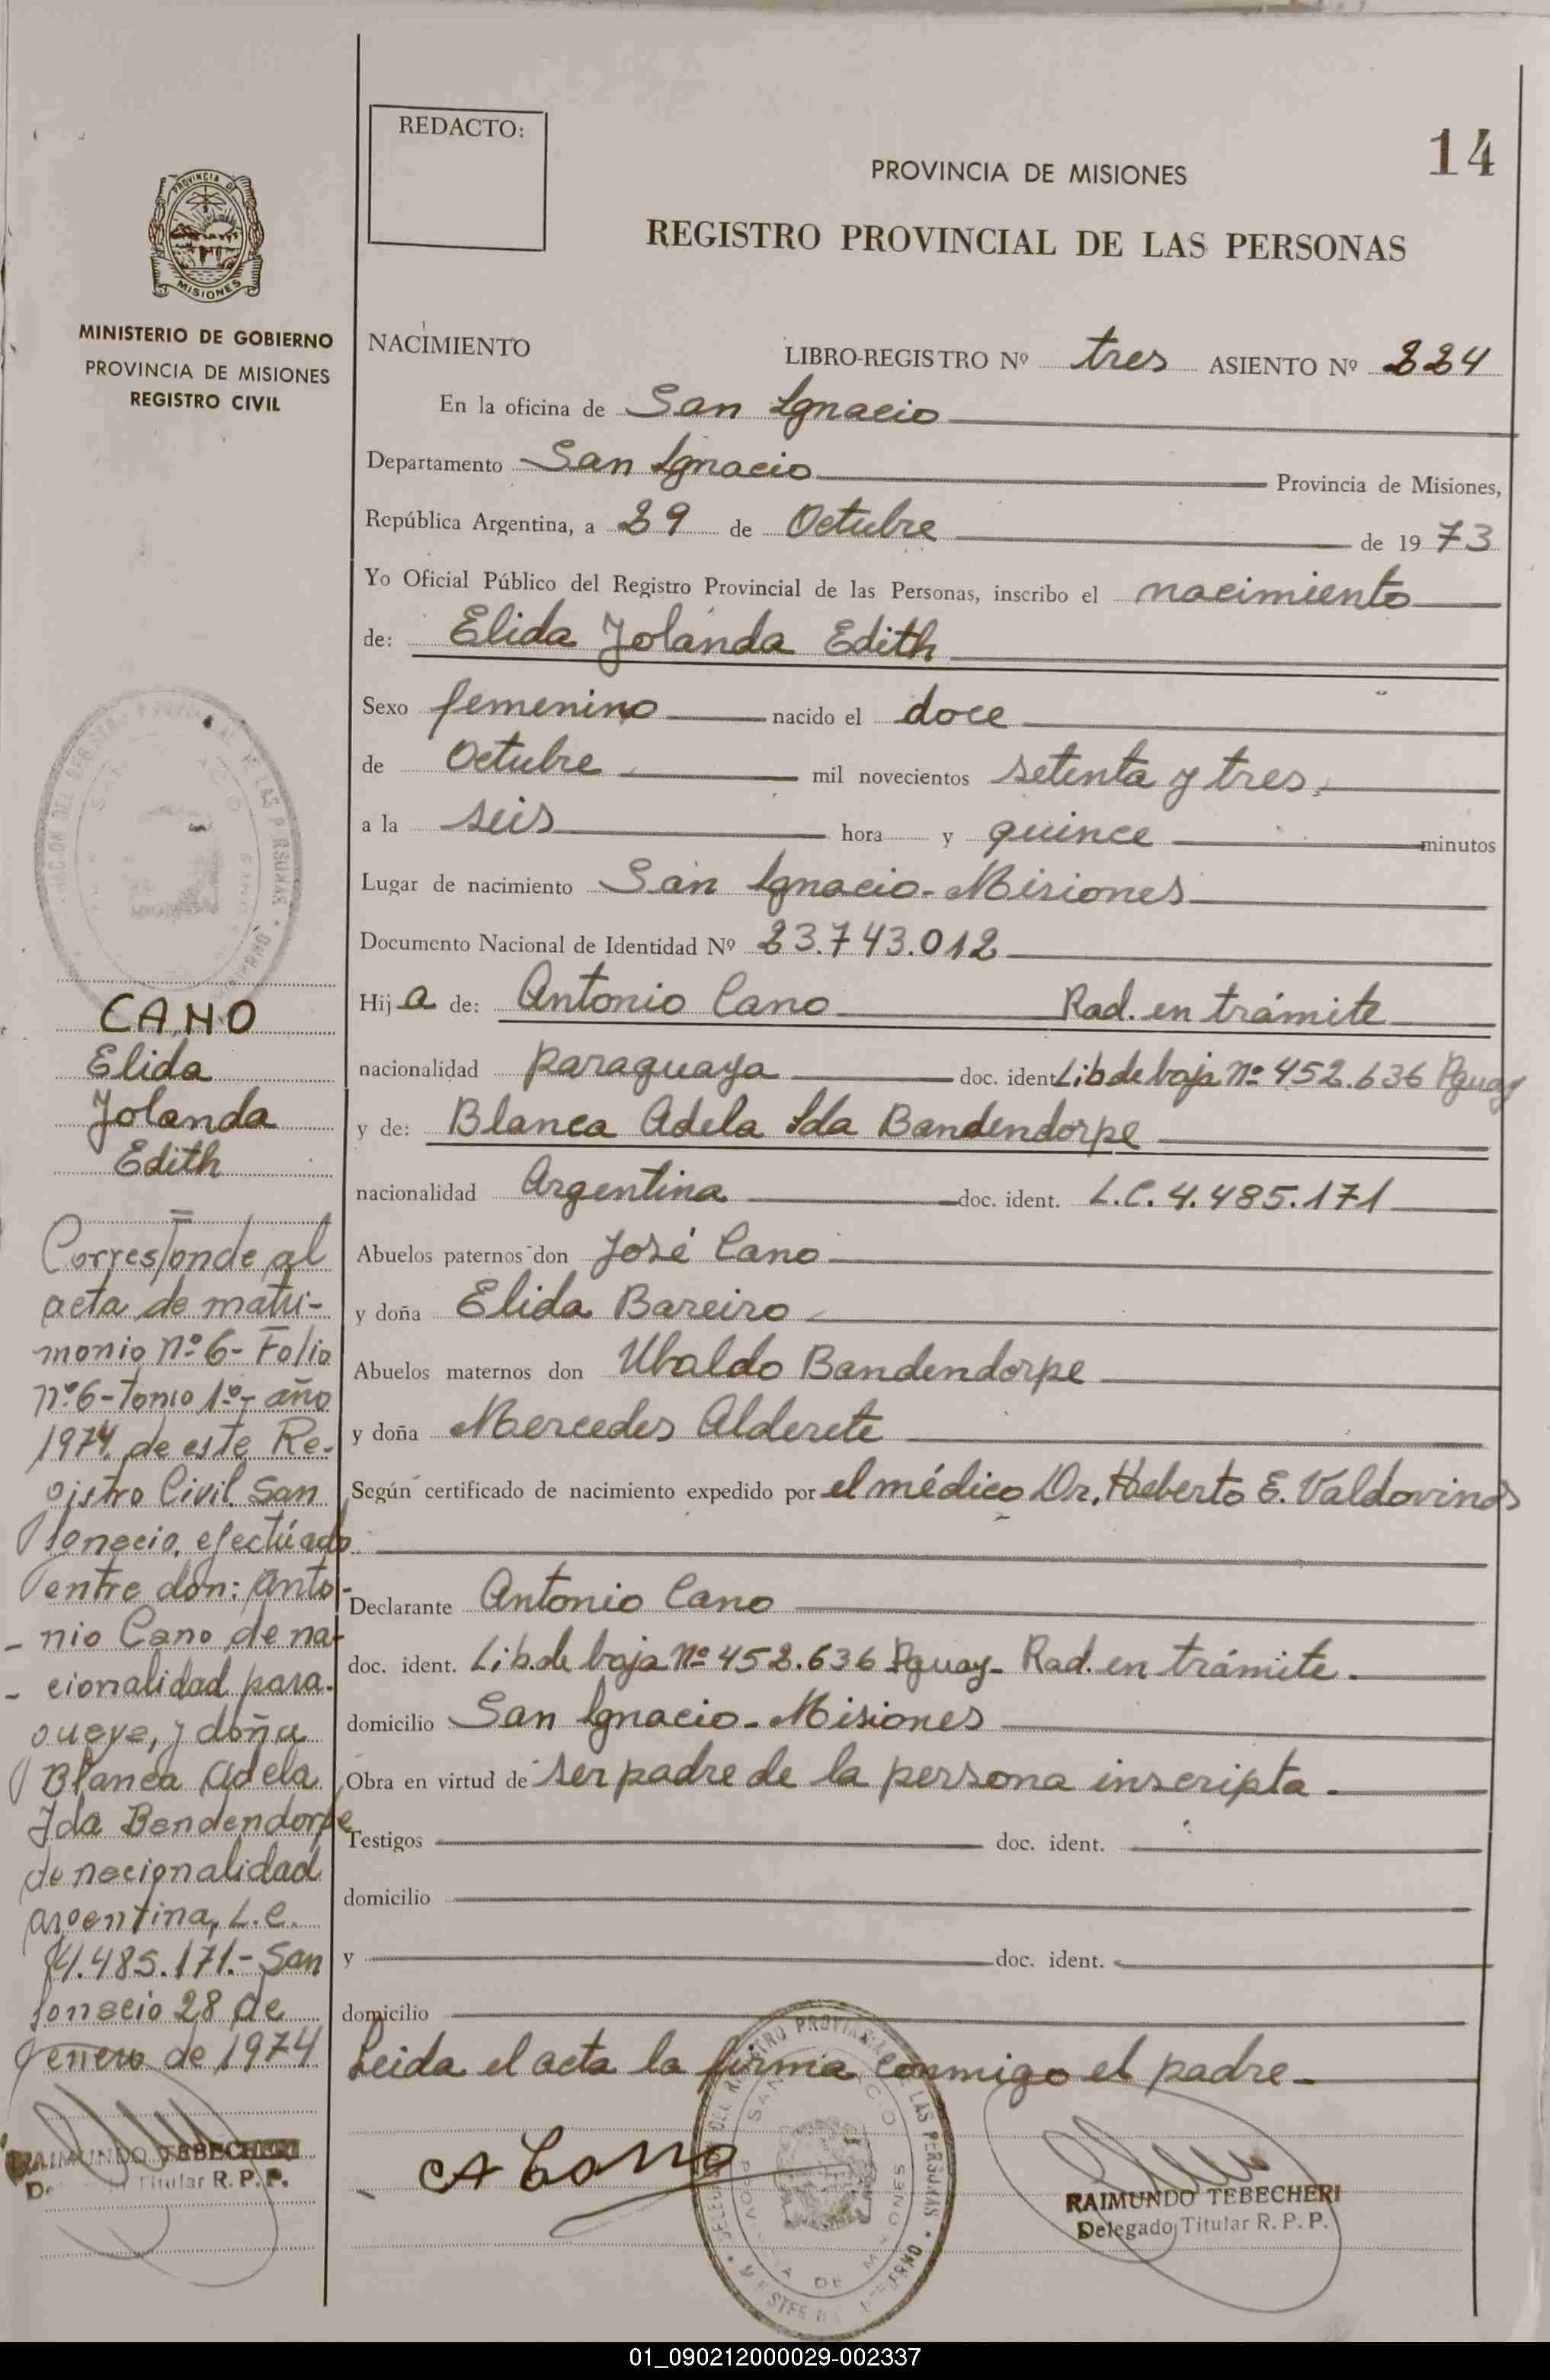 REDACTO:
14
PROVINCIA DE MISIONES
REGISTRO PROVINCIAL DE LAS PERSONAS
PROVINCIA DE
MISIONES
MINISTERIO DE GOBIERNO
PROVINCIA DE MISIONES
REGISTRO CIVIL
NACIMIENTO LIBRO-REGISTRO Nº tres ASIENTO Nº 224
En la oficina de San Ignacio
Departamento San Ignacio Provincia de Misiones,
República Argentina, a 29 de Octubre de 1973
Yo Oficial Público del Registro Provincial de las Personas, inscribo el nacimiento
de: Elida Yolanda Edith
Sexo femenino nacido el doce
de Octubre mil novecientos setenta y tres.
a la seis hora y quince minutos
Lugar de nacimiento San Ignacio-Misiones
Documento Nacional de Identidad Nº 23.743.012
Hija de: Antonio Cano Rad. en trámite
nacionalidad paraguaya doc. ident. Lib de baja nº 452.636 Pguay
y de: Blanca Adela Ida Bandendorpe
nacionalidad Argentina doc. ident. L.C. 4.485.171
Abuelos paternos don José Cano
y doña Elida Bareiro
Abuelos maternos don Ubaldo Bandendorpe
y doña Mercedes Alderete
Según certificado de nacimiento expedido por el médico Dr. Heberto E. Valdovinos
Declarante Antonio Cano
doc. ident. Lib. de baja nº 452.636 Pguay- Rad. en trámite.
domicilio San Ignacio-Misiones
Obra en virtud de ser padre de la persona inscripta.
Testigos doc. ident.
domicilio
y doc. ident.
domicilio
Leida el acta la firma conmigo el padre-
A Cano
RAIMUNDO TEBECHERI
Delegado Titular R. P. P.
CANO
Elida
Yolanda
Edith
Corresponde al
acta de matri-
monio nº 6- Folio
nº 6-Tomo 1º- año
1974, de este Re-
gistro Civil San
Ignacio, efectúado
entre don: Anto-
nio Cano de na-
cionalidad para-
guaya, y doña
Blanca Adela
Ida Bendendorpe
de nacionalidad
argentina, L.C.
4.485.171.- San
Ignacio 28 de
enero de 1974
RAIMUNDO TEBECHERI
Titular R. P. P.
01_090212000029-002337